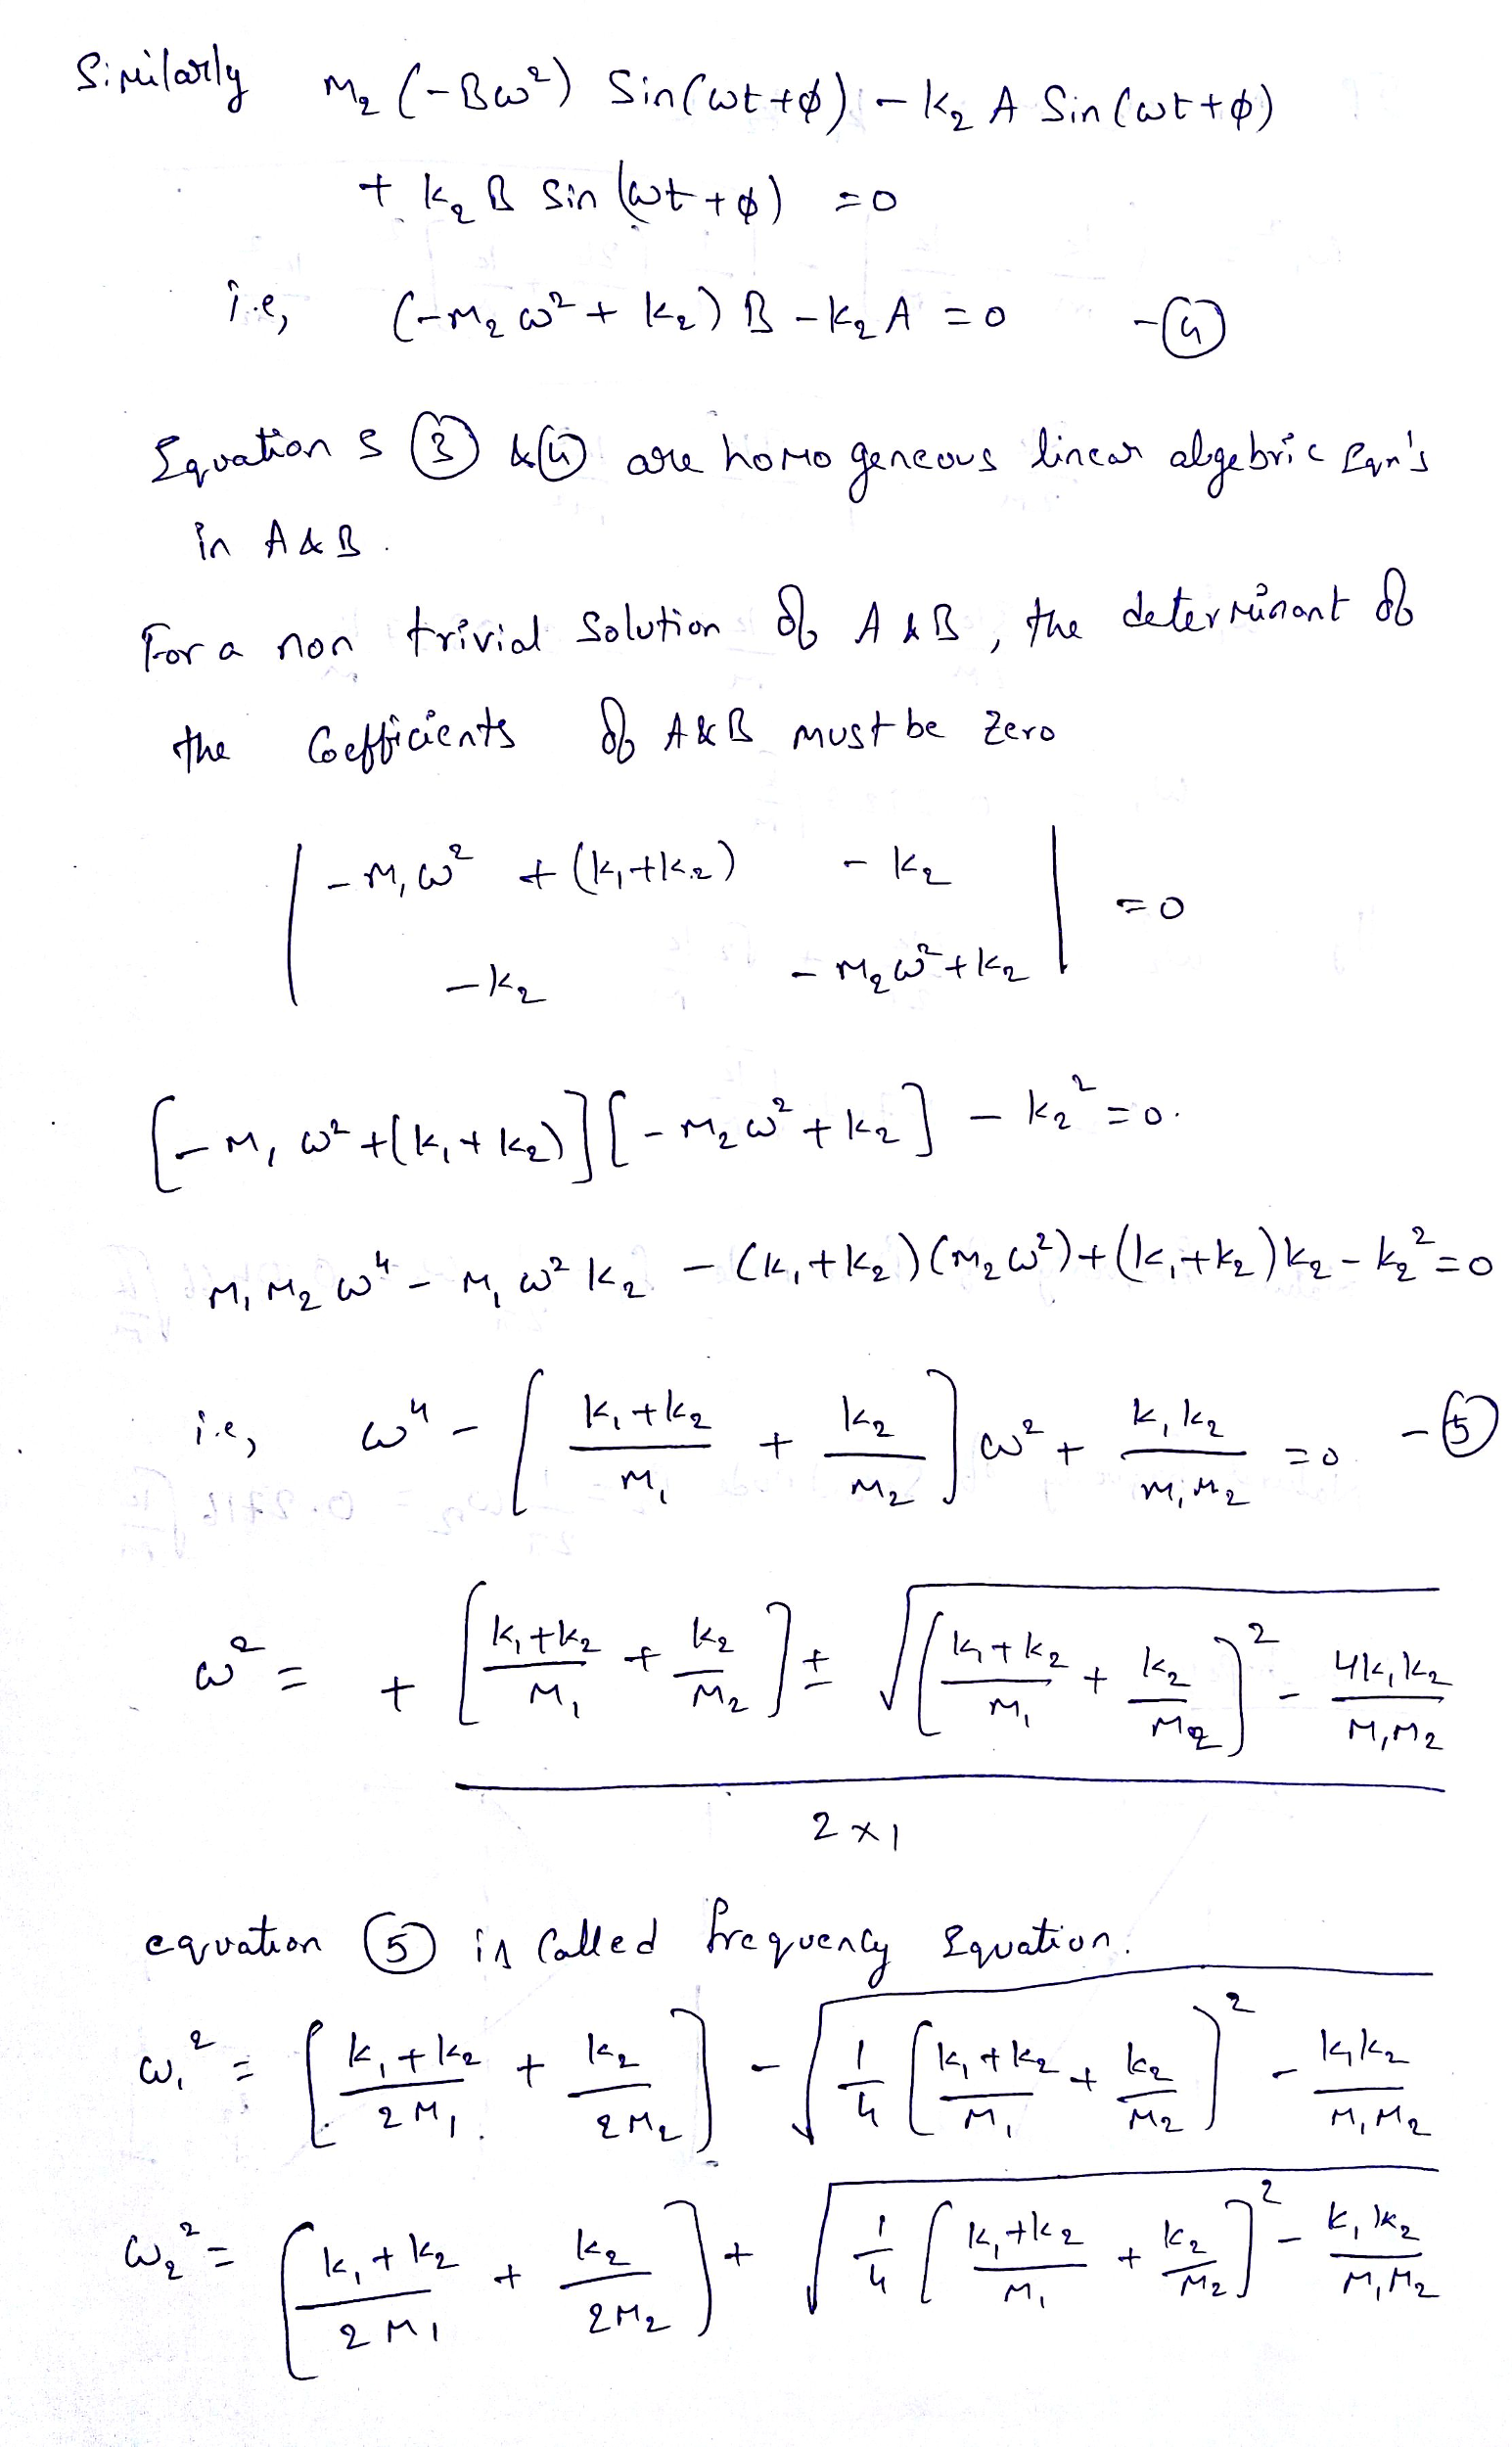 Similarly m₂ (-Bω²) Sin(ωt+φ) - k₂ A Sin(ωt+φ)
+ k₂ B Sin (ωt+φ) = 0
i.e, (-m₂ω² + k₂) B - k₂ A = 0 -④
Equations ③ & ④ are homogeneous linear algebric Eqn's
in A & B.
For a non trivial solution of A & B, the determinant of
the Coefficients of A & B must be zero
| -m₁ω² + (k₁+k₂)   -k₂ |
| -k₂   -m₂ω²+k₂ | = 0
[-m₁ω²+(k₁+k₂)][-m₂ω²+k₂] - k₂² = 0.
m₁m₂ω⁴ - m₁ω²k₂ - (k₁+k₂)(m₂ω²)+(k₁+k₂)k₂ - k₂² = 0
i.e, ω⁴ - [(k₁+k₂)/m₁ + k₂/m₂] ω² + k₁k₂/m₁m₂ = 0 -⑤
ω² = + [(k₁+k₂)/m₁ + k₂/m₂] ± √([(k₁+k₂)/m₁ + k₂/m₂]² - 4k₁k₂/m₁m₂)
2×1
equation ⑤ is called frequency Equation.
ω₁² = [(k₁+k₂)/2m₁ + k₂/2m₂] - √(1/4 [(k₁+k₂)/m₁ + k₂/m₂]² - k₁k₂/m₁m₂)
ω₂² = [(k₁+k₂)/2m₁ + k₂/2m₂] + √(1/4 [(k₁+k₂)/m₁ + k₂/m₂]² - k₁k₂/m₁m₂)